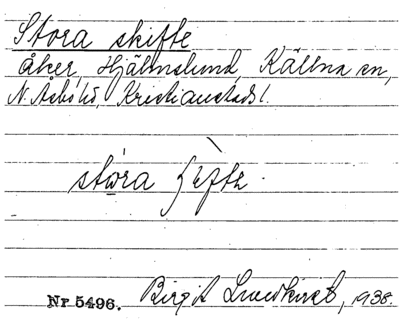 Stora skifte
åker, Hjälmslund, Källna sn,
N. Åsbo hd, Kristianstads l.
stora
Nr 5496. Birgit Lundkvist, 1938.